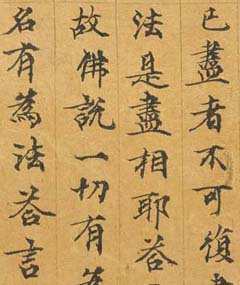 已盡者不可復
法是盡相耶荅
故佛說一切有為
名有為法荅言